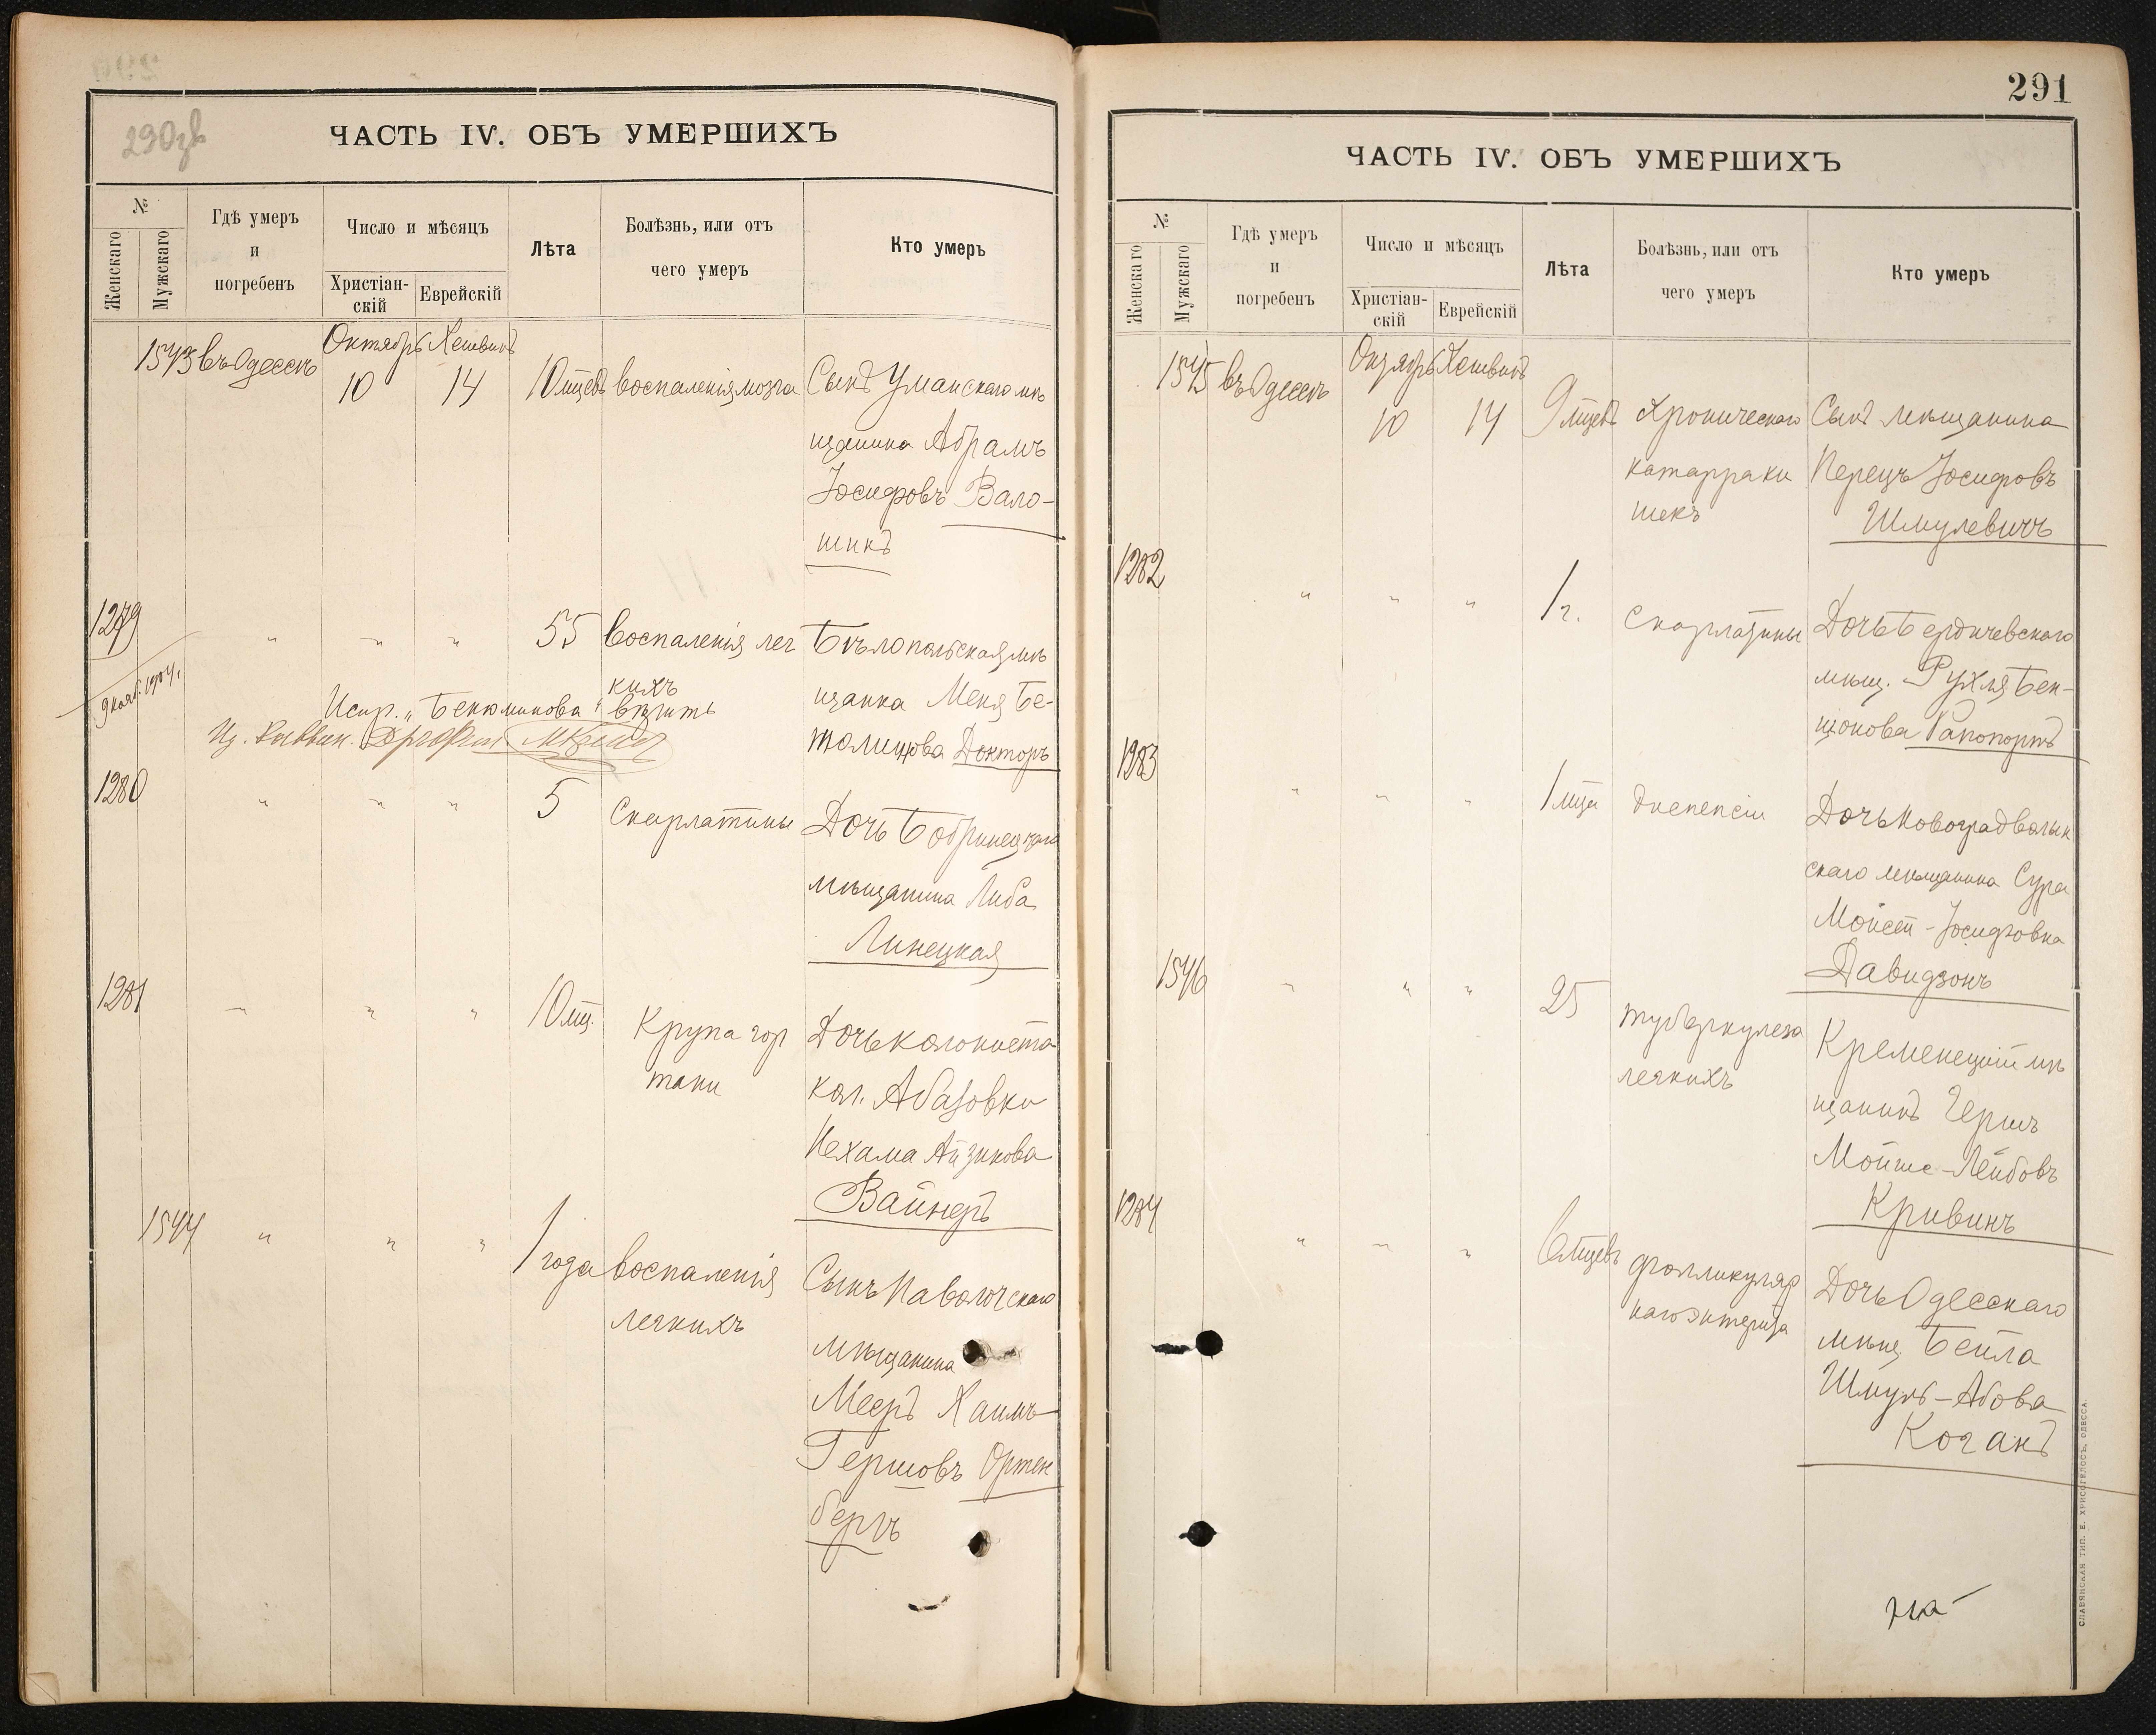 290зв
ЧАСТЬ IV. ОБЪ УМЕРШИХЪ
№
Женскаго
Мужскаго
Гдѣ умеръ
и
погребенъ
Число и мѣсяцъ
Христіан-
скій
Еврейскій
Лѣта
Болѣзнь, или отъ
чего умеръ
Кто умеръ
1543 въ Одессѣ Октябрь Хешвинъ
10 14 10 мцевъ воспаленія мозга Сынъ Уманскаго мѣ
щанина Абрамъ
Іосифовъ Вало-
шинъ
1279 " " " 55 Воспаленія лег Бѣлопольская мѣ
кихъ
щанка Меня Бе-
Испр. "Бенюминова"
9 нояб. 1904.
Из. Раввин.
Докторъ
1280 " " " 5 Скарлатины Дочь Бобринецкаго
мѣщанина Либа
Линецкая
1281 " " " 10 мц. Крупа гор Дочь колониста
тани кол. Абазовки
Нехама Айзикова
Вайнеръ
1544 " " " 1 года воспаленія Сынъ Паволочскаго
легкихъ
мѣщанина
Мееръ Хаимъ
Гершовъ Ортен
бергъ
291
ЧАСТЬ IV. ОБЪ УМЕРШИХЪ
№
Женскаго
Мужскаго
Гдѣ умеръ
и
погребенъ
Число и мѣсяцъ
Христіан-
скій
Еврейскій
Лѣта
Болѣзнь, или отъ
чего умеръ
Кто умеръ
1545 въ Одессѣ Октябрь Хешвинъ
10 14 9 мцевъ Хроническаго Сынъ мѣщанина
катарра ки Перецъ Іосифовъ
шекъ Шмулевичъ
1282 " " " 1 г. Скарлатины Дочь Бердичевскаго
мѣщ. Рухля Бен-
ціонова Рапопортъ
1283 " " " 1 мца диспепсіи Дочь Новоградволын
скаго мѣщанина Сура
Мойсей-Іосифовна
Давидзонъ
1546 " " " 25 туберкулеза Кременецкій мѣ
легкихъ щанинъ Гершъ
Мойше-Лейбовъ
Кривинъ
1284 " " " 6 мцевъ фолликуляр Дочь Одесскаго
наго энтерита мѣщ. Бейла
Шмуль-Абова
Коганъ
на
СЛАВЯНСКАЯ ТИП. Е. ХРИСОГЕЛОСЪ, ОДЕССА.